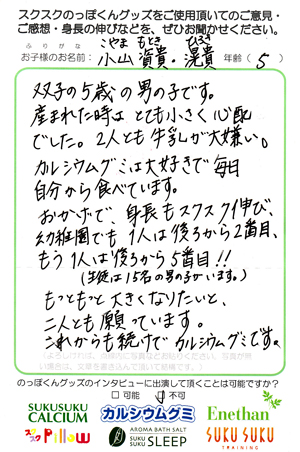 スクスクのっぽくんグッズをご使用頂いてのご意見・
ご感想・身長の伸びなどを、ぜひお聞かせください。
ふりがな こやま もとき ひろき
お子様のお名前: 小山 資貴・滉貴 年齢(5)
双子の5歳の男の子です。
産まれた時は とても小さく心配
でした。2人とも牛乳が大嫌い。
カルシウムグミは大好きで毎日
自分から食べています。
おかげで、身長もスクスク伸び、
幼稚園でも1人は後ろから2番目、
もう1人は後ろから5番目!!
(生徒は15名の男の子がいます。)
もっともっと大きくなりたいと、
二人とも願っています。
これからも続けてカルシウムグミです。
のっぽくんグッズのインタビューに出演して頂くことは可能ですか?
□可能 ☑不可
SUKUSUKU CALCIUM
カルシウムグミ
Enethan
スクスク Pillow
AROMA BATH SALT
SUKU SUKU SLEEP
SUKU SUKU
TRAINING